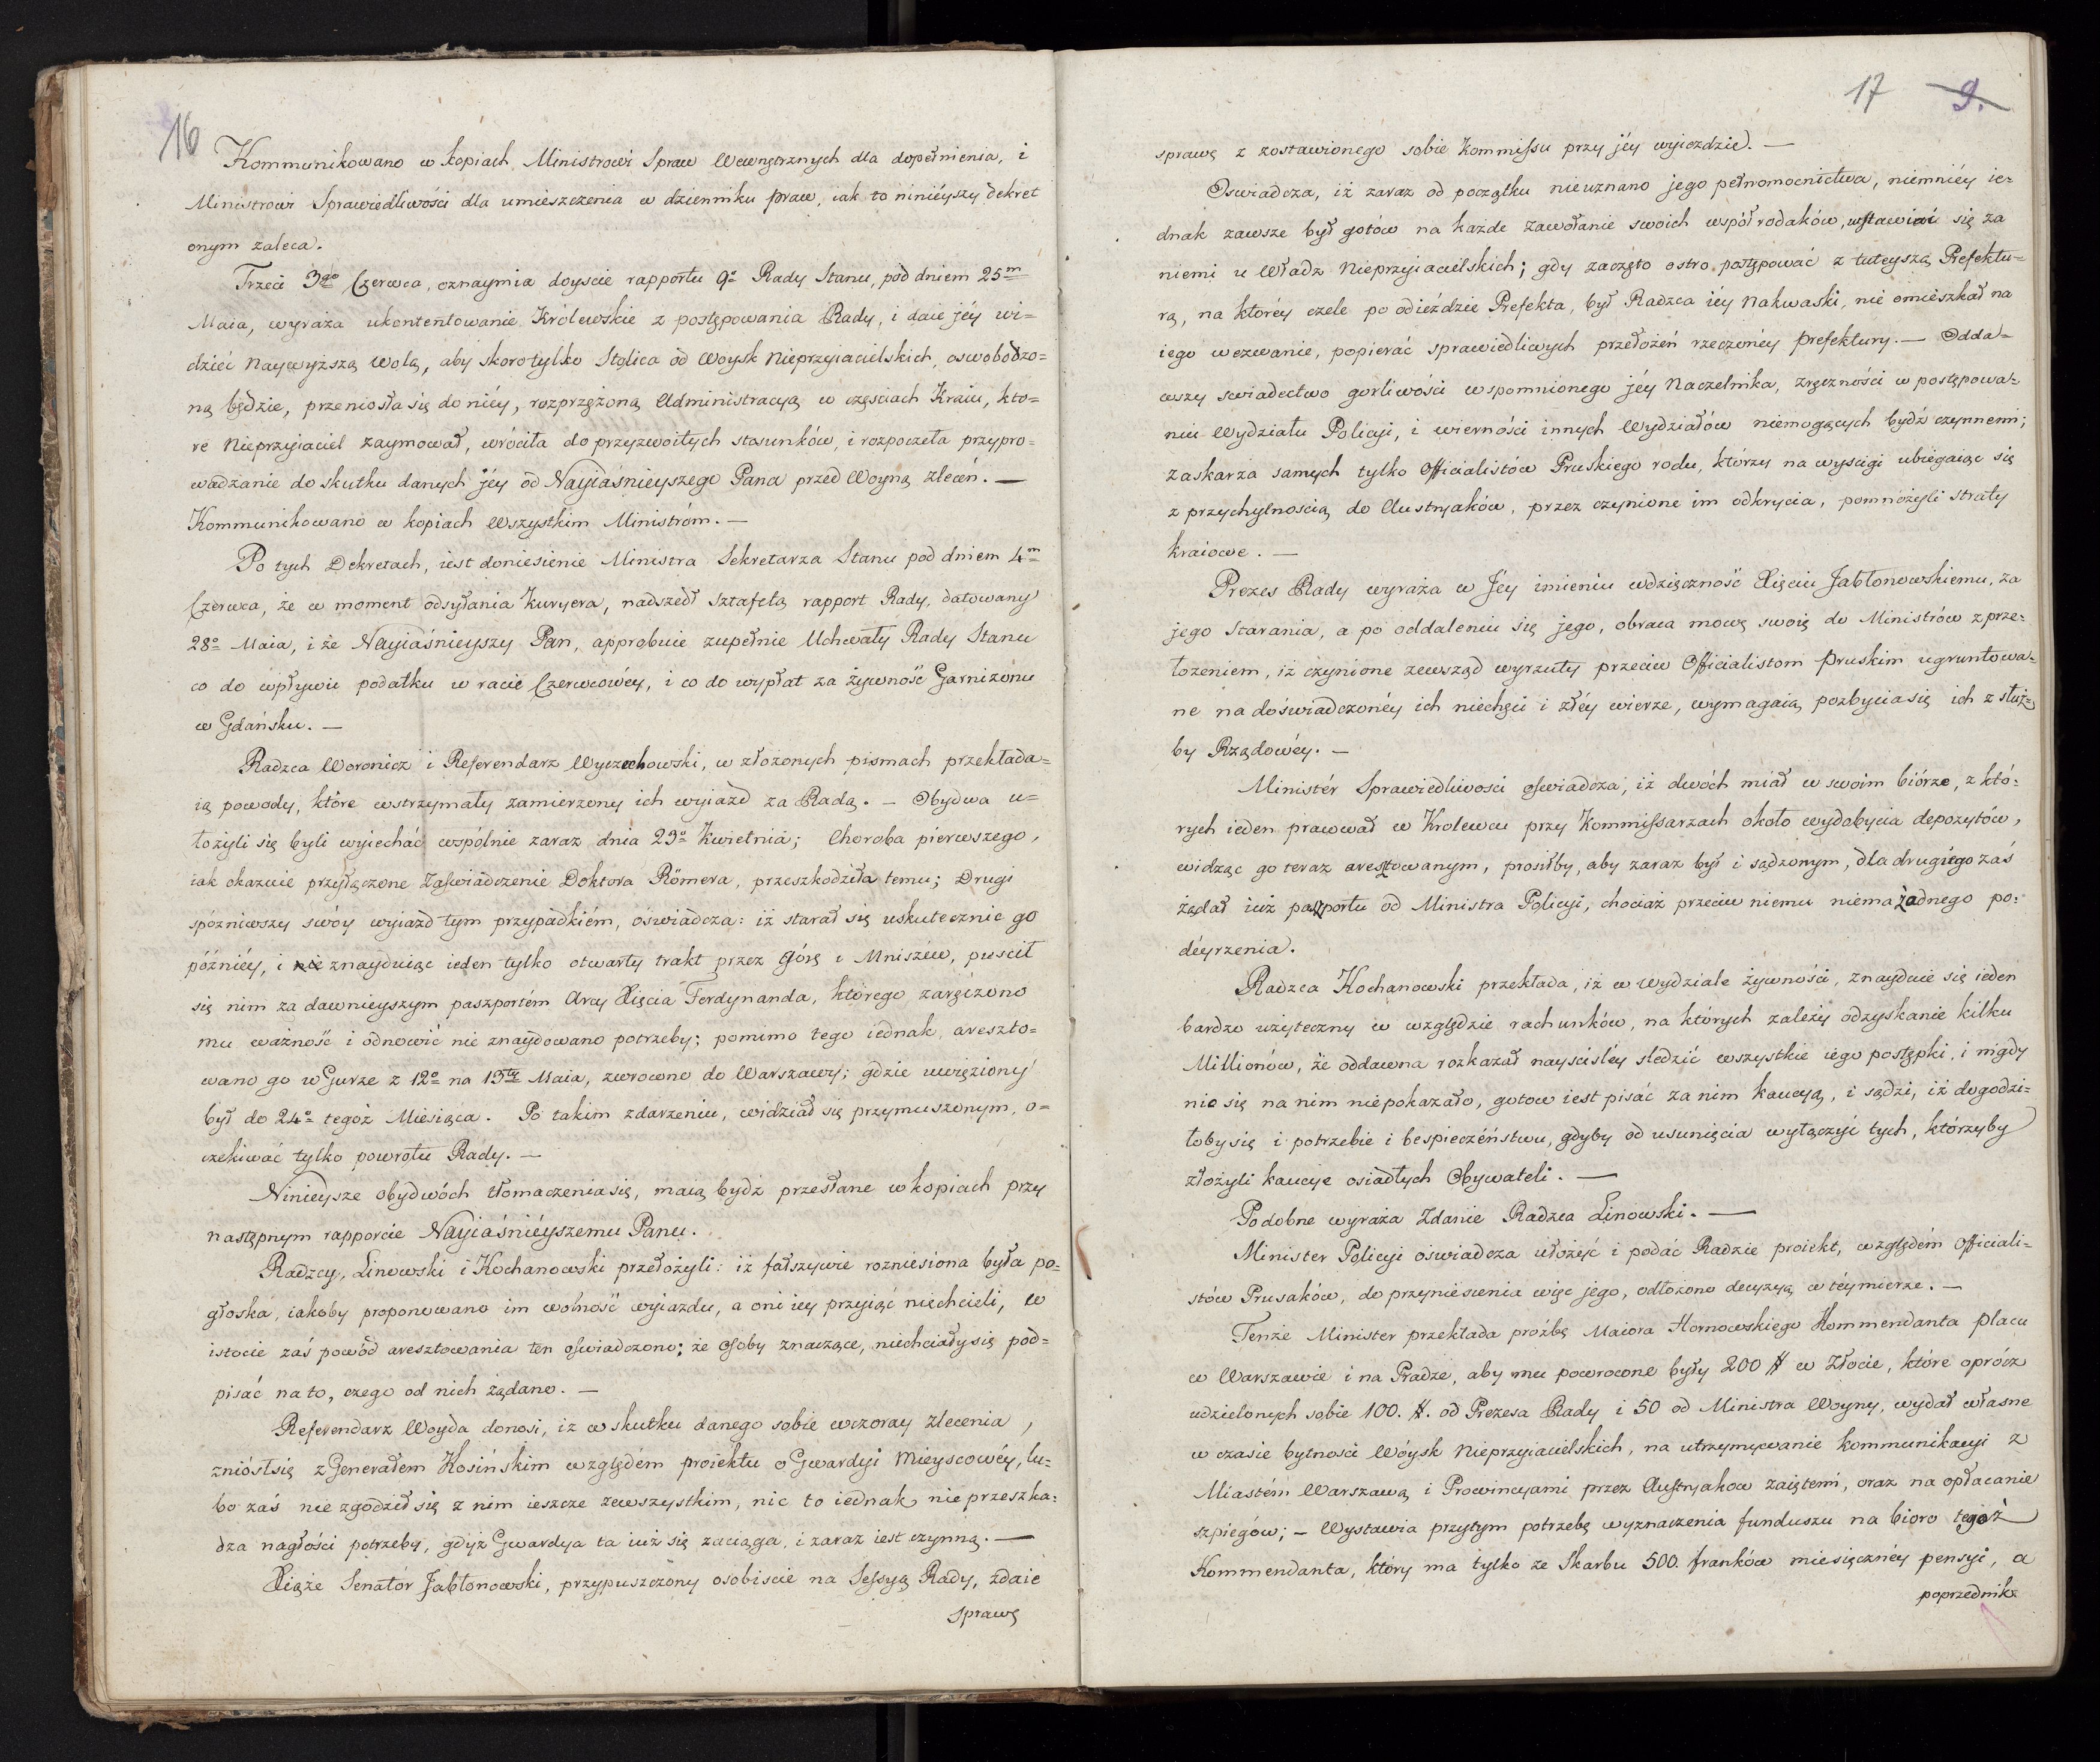 16
Kommunikowano w kopiach Ministrowi Spraw Wewnętrznych dla dopełnienia, i
Ministrowi Sprawiedliwości dla umieszczenia w dzienniku praw, iak to ninieyszy dekret
onym zaleca.
Trzeci 3go Czerwca, oznaymia doyscie rapportu 9o Rady Stanu, pod dniem 25m
Maia, wyraża ukontentowanie Królewskie z postępowania Rady, i daie jéy wi=
dzieć Naywyższą Wolą, aby skoro tylko Stolica od Woysk Nieprzyiacielskich, oswobodzo=
ną będzie, przeniosła się do niéy, rozprzężoną Administracyą w częściach Kraiu, któ=
re Nieprzyiaciel zaymował, wróciła do przyzwoitych stosunków, i rozpoczeła przypro=
wadzanie do skutku danych jéy od Nayiaśnieyszego Pana przed Woyną zleceń. —
Kommunikowano w kopiach Wszystkim Ministróm. —
Po tych Dekretach, iest doniesienie Ministra Sekretarza Stanu pod dniem 4m
Czerwca, że w moment odsyłania Kuryera, nadszedł sztafetą rapport Rady, datowany
28o Maia, i że Nayiaśnieyszy Pan, approbuie zupełnie Uchwały Rady Stanu
co do wpływu podatku w racie Czerwcowéy, i co do wypłat za żywność Garnizonu
w Gdańsku. —
Radzca Woronicz i Referendarz Wyczechowski, w złożonych pismach przekłada=
ią powody, które wstrzymały zamierzony ich wyiazd za Radą. — Obydwa u=
łożyli się byli wyiechać wspólnie zaraz dnia 29o Kwietnia; Choroba pierwszego,
iak okazuie przyłączone Zaświadczenie Doktora Römera, przeszkodziła temu; Drugi
spózniwszy swóy wyiazd tym przypadkiém, oświadcza: iż starał się uskutecznic go
późniéy, i nie znayduiąc ieden tylko otwarty trakt przez Górę i Mniszew, puscił
się nim za dawnieyszym paszportém Arcy Xięcia Ferdynanda, którego zaręczono
mu ważność i odnowić nie znaydowano potrzeby; pomimo tego iednak, areszto=
wano go w Gurze z 12o na 13ty Maia, zwrocono do Warszawy; gdzie uwięziony
był do 24o tegoż Miesiąca. Po takim zdarzeniu, widział się przymuszonym, o=
czekiwać tylko powrotu Rady. —
Ninieysze obydwóch tłomaczenia się, maią bydź przesłane w kopiach przy
następnym rapporcie Nayiaśniéyszemu Panu.
Radzcy, Linowski i Kochanowski przełożyli: iż fałszywie rozniesiona była po=
głoska, iakoby proponowano im wolność wyiazdu, a oni iéy przyiąć niechcieli, w
istocie zaś powód aresztowania ten oświadczono; że osoby znaczące, niechciały się pod=
pisać na to, czego od nich żądano. —
Referendarz Woyda donosi, iz w skutku danego sobie wczoray zlecenia,
zniósł się z Generałem Kosińskim względém proiektu o Gwardyi Mieyscowéy, lu=
bo zaś nie zgodził się z nim ieszcze zewszystkim, nic to iednak nie przeszka=
dza nagłości potrzeby, gdyż Gwardya ta iuż się zaciąga, i zaraz iest czynną. —
Xiąże Senatór Jabłonowski, przypuszczony osobiscie na Sessyą Rady, zdaie
sprawę
17 9.
sprawę z zostawionego sobie Kommissu przy jéy wyiezdzie. —
Oswiadcza, iż zaraz od początku nieuznano jego pełnomocnictwa, niemniéy ie=
dnak zawsze był gotów na każde zawołanie swoich współrodaków, wstawiać się za
niemi u Władz Nieprzyiacielskich; gdy zaczęto ostro postępować z tuteyszą Prefektu=
rą, na któréy czele po odieździe Prefekta, był Radzca iéy Nakwaski, nie omieszkał na
iego wezwanie, popierać sprawiedliwych przełożeń rzeczonéy prefektury. — Odda=
wszy swiadectwo gorliwości wspomnionego jéy Naczelnika, zręczności w postępowa=
niu Wydziału Policyi, i wierności innych Wydziałów niemogących bydź czynnemi;
zaskarza samych tylko Officialistów Pruskiego rodu, którzy na wyscigi ubiegaiąc się
z przychylnoscią do Austryaków, przez czynione im odkrycia, pomnożyli straty
kraiowe. —
Prezes Rady wyraża w Jéy imieniu wdzięczność Xięciu Jabłonowskiemu, za
jego starania, a po oddaleniu się jego, obraca mowę swoię do Ministrów z prze=
łożeniem, iż czynione zewsząd wyrzuty przeciw Officialistom pruskim ugruntowa=
ne na doświadczonéy ich niechęci i złéy wierze, wymagaią pozbycia się ich z służ=
by Rządowéy. —
Ministér Sprawiedliwosci oświadcza, iż dwóch miał w swoim biórze, z któ=
rych ieden pracował w Krolewcu przy Kommissarzach około wydobycia depozytów,
widząc go teraz aresztowanym, prosiłby, aby zaraz był i sądzonym, dla drugiego zaś
żądał iuż paszportu od Ministra Policyi, chociaż przeciw niemu niema żadnego po=
déyrzenia.
Radzca Kochanowski przekłada, iż w Wydziale żywności, znayduie się ieden
bardzo użyteczny w względzie rachunków, na których zależy odzyskanie kilku
Millionów, że oddawna rozkazał nayscisléy sledzić wszystkie iego postępki, i nigdy
nic się na nim niepokazało, gotow iest pisać za nim kaucyą, i sądzi, iż dogodzi=
łoby się i potrzebie i bespieczéństwu, gdyby od usunięcia wyłączyć tych, którzyby
złożyli kaucye osiadłych Obywateli. —
Podobne wyraża Zdanie Radzca Linowski. —
Minister Policyi oświadcza ułożyć i podać Radzie proiekt, względém Officiali=
stów Prusaków, do przyniesienia więc jego, odłożono decyzyą w téymierze. —
Tenże Minister przekłada proźbę Maiora Hornowskiego Kommendanta placu
w Warszawie i na Pradze, aby mu powrocone były 200 # w Złocie, które oprócz
udzielonych sobie 100. #. od Prezesa Rady i 50 od Ministra Woyny, wydał własne
w czasie bytnosci Wóysk Nieprzyiacielskich, na utrzymywanie kommunikacyi z
Miastém Warszawą i Prowincyami przez Austryakow zaiętemi, oraz na opłacanie
szpiegów; — Wystawia przytym potrzebę wyznaczenia funduszu na bioro tegoż
Kommendanta, który ma tylko ze Skarbu 500. franków miesięcznéy pensyi, a
poprzednik